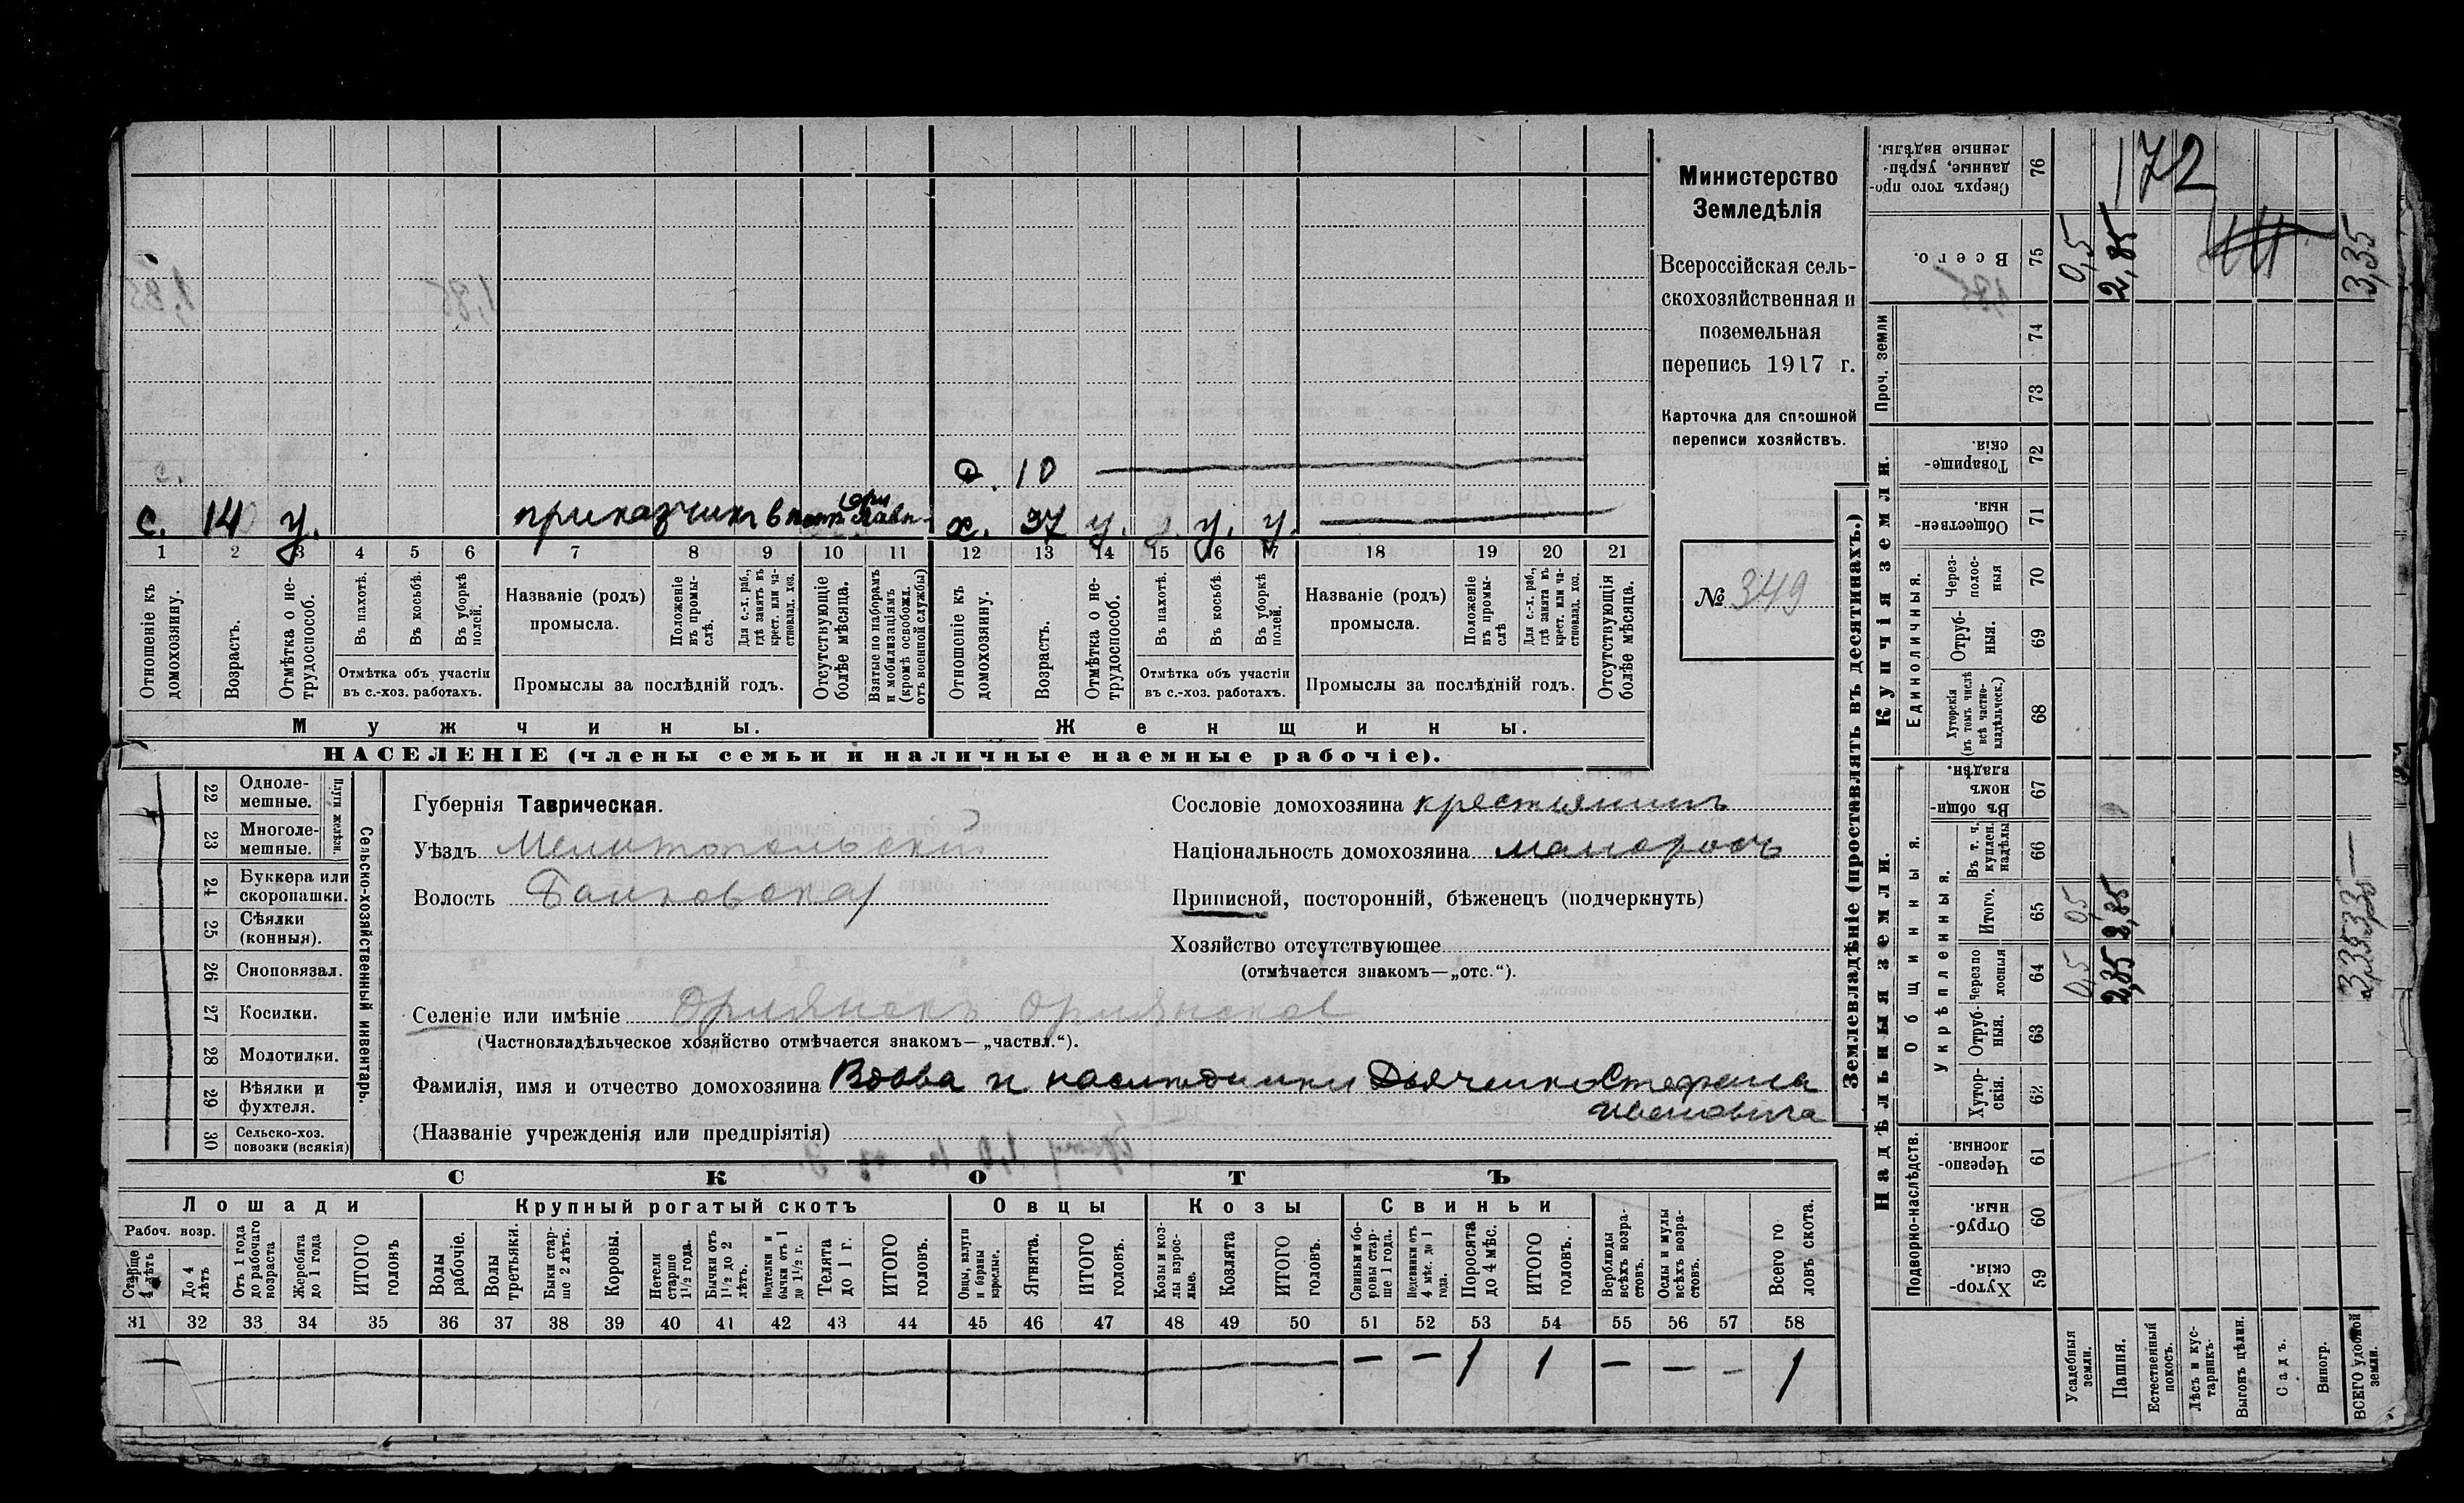 172
Министерство
Земледѣлія
Всероссійская сель-
скохозяйственная и
поземельная
перепись 1917 г.
Карточка для сплошной
переписи хозяйствъ.
№ 349
О. 10
с. 14 у. приказчикъ в потр. лавк.
х. 37 у. у. у. у.
1 2 3 4 5 6 7 8 9 10 11 12 13 14 15 16 17 18 19 20 21
Отношеніе къ домохозяину.
Возрастъ.
Отмѣтка о не-трудоспособ.
Въ пахотѣ.
Въ косьбѣ.
Въ уборкѣ полей.
Отмѣтка объ участіи
въ с.-хоз. работахъ.
Названіе (родъ)
промысла.
Положеніе въ промы-слѣ.
Для с.-х. раб., гдѣ занятъ въ крест. или ча-стновлад. хоз.
Промыслы за послѣдній годъ.
Отсутствующіе болѣе мѣсяца.
Взятые по наборамъ и мобилизаціямъ (кромѣ освобожд. отъ военной службы)
Отношеніе къ домохозяину.
Возрастъ.
Отмѣтка о не-трудоспособ.
Въ пахотѣ.
Въ косьбѣ.
Въ уборкѣ полей.
Отмѣтка объ участіи
въ с.-хоз. работахъ.
Названіе (родъ)
промысла.
Положеніе въ промы-слѣ
Для с.-х. раб., гдѣ занята въ крест. или ча-стновлад. хоз.
Промыслы за послѣдній годъ.
Отсутствующія болѣе мѣсяца.
Мужчины.
Женщины.
НАСЕЛЕНІЕ (члены семьи и наличные наемные рабочіе).
22 Одноле-мешные.
23 Многоле-мешные.
Плуги желѣзн.
24 Буккера или скоропашки.
25 Сѣялки (конныя).
26 Сноповязал.
27 Косилки.
28 Молотилки.
29 Вѣялки и фухтеля.
30 Сельско-хоз. повозки (всякія)
Сельско-хозяйственный инвентарь.
Губернія Таврическая.
Уѣздъ Мелитопольскій
Волость Балковская
Сословіе домохозяина крестьянинъ
Національность домохозяина малороссъ
Приписной, посторонній, бѣженецъ (подчеркнуть)
Хозяйство отсутствующее
(отмѣчается знакомъ—„отс.“).
Селеніе или имѣніе Орлянскъ Орлянское
(Частновладѣльческое хозяйство отмѣчается знакомъ—„частвл.“).
Фамилія, имя и отчество домохозяина Вдова и наслѣдники Дьяченко Стефана
Ивановича
(Названіе учрежденія или предпріятія)
СКОТЪ
Лошади
Крупный рогатый скотъ
Овцы
Козы
Свиньи
Рабоч. возр.
Старше 4 лѣтъ
До 4 лѣтъ
Отъ 1 года до рабочаго возраста
Жеребята до 1 года
ИТОГО головъ
Волы рабочіе.
Волы третьяки.
Быки стар-ше 2 лѣтъ.
Коровы.
Нетели старше 1½ года.
Бычки отъ 1½ до 2 лѣтъ.
Подтелки и бычки отъ 1 до 1½ г.
Телята до 1 г.
ИТОГО головъ.
Овцы, валухи и бараны взрослые.
Ягнята.
ИТОГО головъ.
Козы и коз-лы взрос-лые.
Козлята
ИТОГО головъ.
Свиньи и бо-ровы стар-ше 1 года.
Подсвинки отъ 4 мѣс. до 1 года.
Поросята до 4 мѣс.
ИТОГО головъ.
Верблюды всѣхъ возра-стовъ.
Ослы и мулы всѣхъ возра-стовъ.
Всего го ловъ скота.
31 32 33 34 35 36 37 38 39 40 41 42 43 44 45 46 47 48 49 50 51 52 53 54 55 56 57 58
— — — 1 1 — — - 1
Землевладѣніе (проставлять въ десятинахъ.)
Надѣльныя земли.
Купчія земли.
Подворно-наслѣдств.
Общинныя.
Укрѣпленныя.
Единоличныя.
Проч. земли
Хутор-скія. 59
Отруб-ныя. 60
Черезпо-лосныя. 61
Хутор-скія. 62
Отруб-ныя. 63
Черезпо лосныя 64
Итого. 65
Въ т. ч. куплен. надѣлы 66
Въ общи-номъ владѣн. 67
Хуторскія (въ томъ числѣ всѣ частно-владѣльческ.) 68
Отруб-ныя. 69
Через-полос-ныя 70
Обществен-ныя. 71
Товарище-скія. 72
73
74
Всего. 75
Сверхъ того про-данные, укрѣп-ленные надѣлы. 76
Усадебныя земли. 0,5 0,5 0,5
Пашня. 2,85 2,85 2,85
Естественный покосъ.
Лѣсъ и кус-тарникъ.
Выгонъ цѣлин.
Садъ.
Виногр.
ВСЕГО удобной земли. 3,35 3,35 3,35